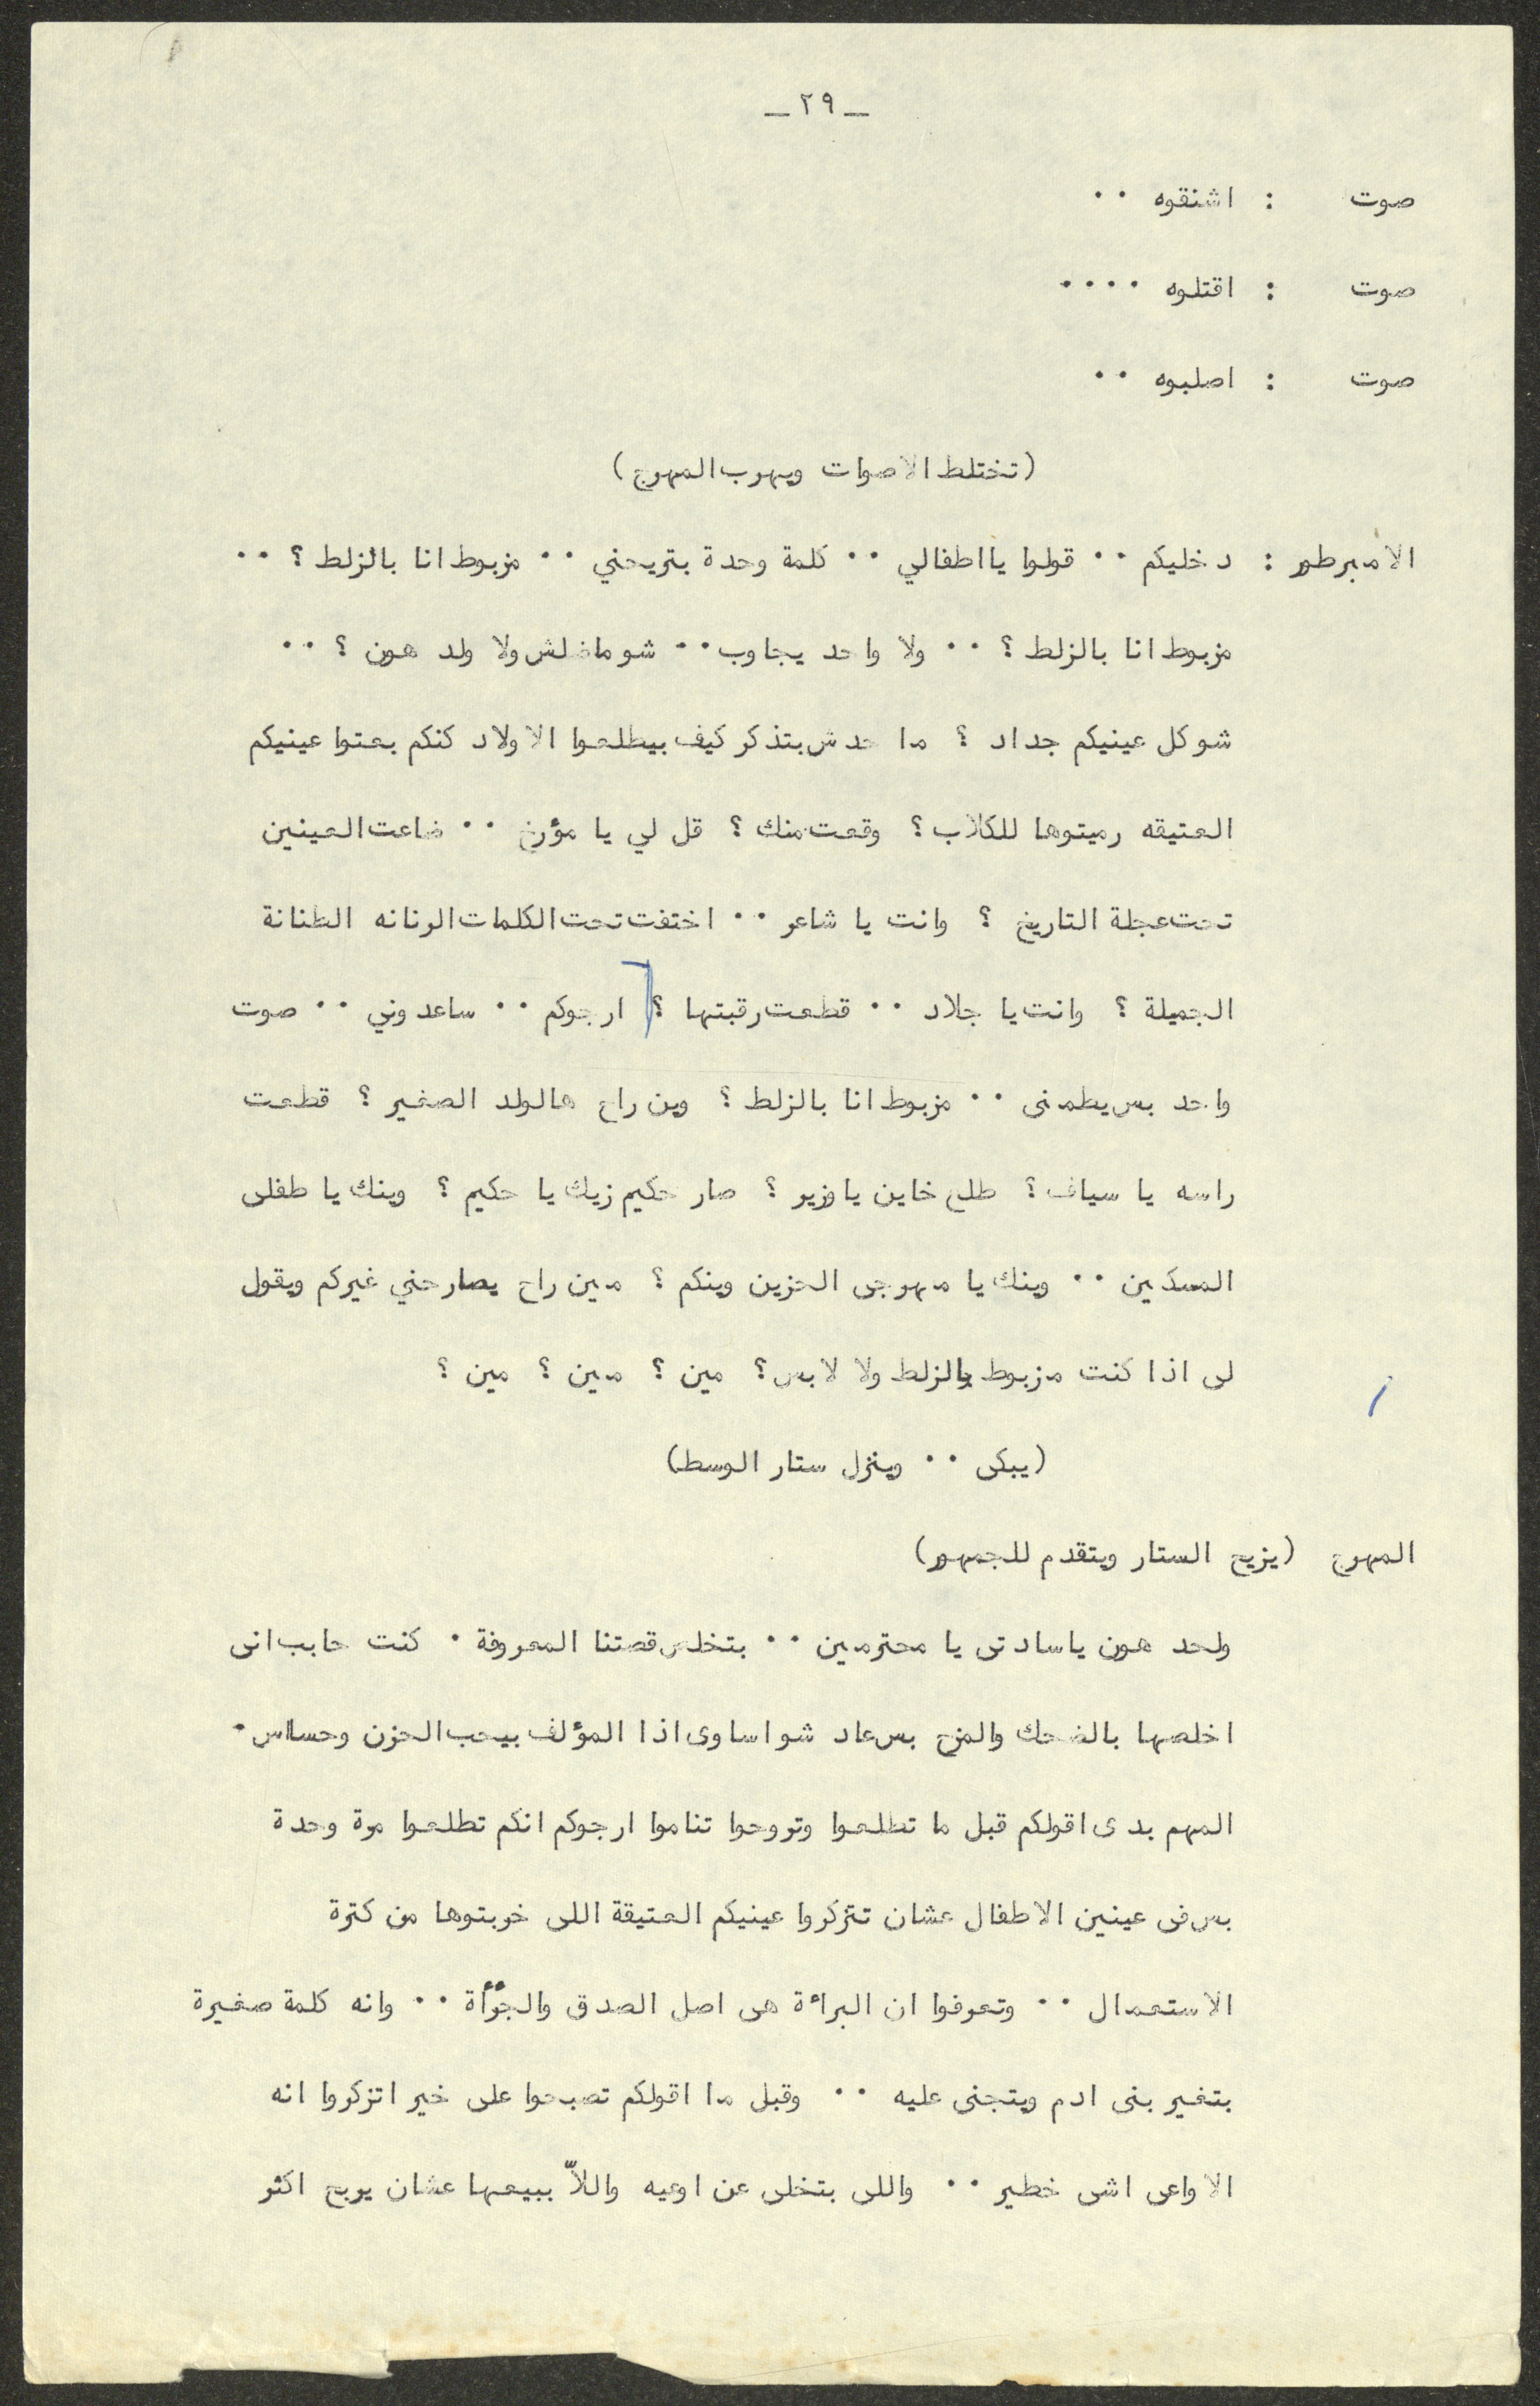 _ ٢٩ _
صوت : اشنقوه ٠٠
صوت : اقتلوه ٠٠٠٠
صوت : اصلبوه ٠٠
(تختلط الاصوات ويهرب المهرج)
الامبرطور : دخليكم ٠٠ قولوا يا اطفالي ٠٠ كلمة وحدة بتريحني ٠٠ مزبوط انا بالزلط ؟ ٠٠
مزبوط انا بالزلط ؟ ٠٠ ولا واحد يجاوب ٠٠ شو ماضلش ولا ولد هون ؟ ٠٠
شو كل عينيكم جداد ؟ ما حدش بتذكر كيف بيطلعوا الاولاد كنكم بعتوا عينيكم
العتيقه رميتوها للكلاب ؟ وقعت منك ؟ قل لي يا مؤرخ ٠٠ ضاعت العينين
تحت عجلة التاريخ ؟ وانت يا شاعر ٠٠ اختفت تحت الكلمات الرنانه الطنانة
الجميلة ؟ وانت يا جلاد ٠٠ قطعت رقبتها ؟ ارجوكم ٠٠ ساعدوني ٠٠ صوت
واحد بس يطمنى ٠٠ مزبوط انا بالزلط ؟ وين راح هالولد الصغير ؟ قطعت
راسه يا سياف ؟ طلع خاين يا وزير ؟ صار حكيم زيك يا حكيم ؟ وينك يا طفلى
المسكين ٠٠ وينك يا مهرجى الحزين وينكم ؟ مين راح يصارحني غيركم ويقول
لى اذا كنت مزبوط بالزلط ولا لابس ؟ مين ؟ مين ؟ مين ؟
(يبكى ٠٠ وينزل ستار الوسط)
المهرج (يزيح الستار ويتقدم للجمهور)
ولحد هون ياسادتى يا محترمين ٠٠ بتخلص قصتنا المعروفة ٠ كنت حابب انى
اخلصها بالضحك والمزح بس عاد شو اساوى اذا المؤلف بيحب الحزن وحساس ٠
المهم بدى اقولكم قبل ما تطلعوا وتروحوا تناموا ارجوكم انكم تطلعوا مرة وحدة
بس فى عينين الاطفال عشان تتزكروا عينيكم العتيقة اللى خربتوها من كترة
الاستعمال ٠٠ وتعرفوا ان البراءة هى اصل الصدق والجرأة ٠٠ وانه كلمة صغيرة
بتغير بنى ادم ويتجنى عليه ٠٠ وقبل ما اقولكم تصبحوا على خير اتزكروا انه
الاواعى اشى خطير ٠٠ واللى بتخلى عن اوعيه واللاّ ببيعها عشان يربح اكثر